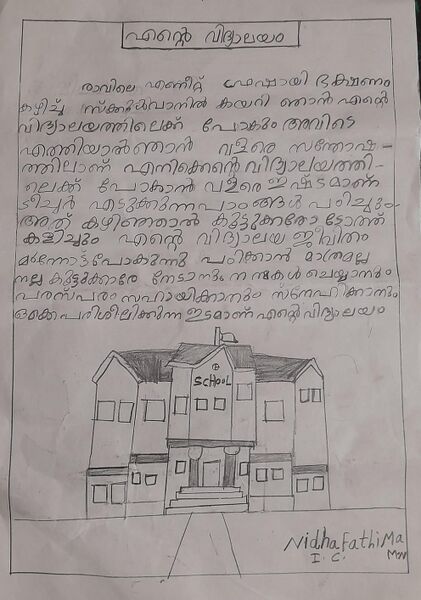 എൻ്റെ വിദ്യാലയം
രാവിലെ എണീറ്റ് ഫ്രഷായി ഭക്ഷണം
കഴിച്ച് സ്ക്കൂൾവാനിൽ കയറി ഞാൻ എൻ്റെ
വിദ്യാലയത്തിലെക്ക് പോകും അവിടെ
എത്തിയാൽഞാൻ വളരെ സന്തോഷ-
ത്തിലാണ് എനിക്കെൻ്റെവിദ്യാലയത്തി-
ലെക്ക് പോകാൻ വളരെഇഷടമാണ്
ടീച്ചർ എടുക്കുന്നപാഠങ്ങൾ പഠിച്ചും
അത് കഴിഞ്ഞാൽ കൂട്ടുക്കാരോടോത്ത്
കളിച്ചും എൻ്റെ വിദ്യാലയജീവിതം
മുന്നോട്ട്പോകുന്നു പഠിക്കാൻ മാത്രമല്ല
നല്ല കൂട്ടുക്കാരേ നേടാനും നന്മകൾചെയ്യാനും
പരസ്പരം സഹായിക്കാനും സ്നേഹിക്കാനും
ഒക്കെപരിശീലിക്കുന്ന ഇടമാണ് എൻ്റെ വിദ്യാലയം
SCHOOL
Nidha Fathima
I. C.